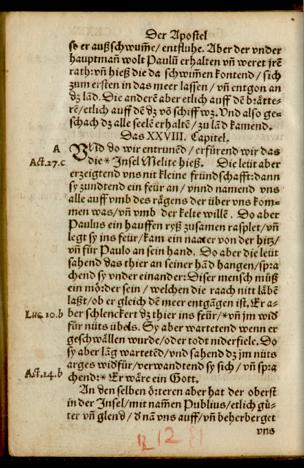 Der Apostel
so er außschwum̃e / entfluhe. Aber der vnder
hauptman̄ wolt Paulū erhalten vn̄ weret jrē
rath: vn̄ hieß die da schwim̄en kontend / sich
zum ersten in das meer lassen / vn̄ entgon an
dz läd. Die anderē aber etlich auff dē brätte-
rē / etlich auff dē dz vō schiff wz. Vnd also ge-
schach dz alle seelē erhaltē / zu läd kamend.
Das XXVIII. Capitel.
A
Vnd do wir entrunēd / erfürend wir das
Act.27.c
die * Insel Melite hieß. Die leüt aber
erzeigtend vns nit kleine fründschafft: dann
sy zundtend ein feür an / vnnd namend vns
alle auff vmb des rägens der über vns kom-
men was / vn̄ vmb der kelte willē. Do aber
Paulus ein hauffen ryß zusamen rasplet / vn̄
legt sy ins feür / kam ein nater von der hitz /
vn̄ für Paulo an sein hand. Do aber die leüt
sahend das thier an seiner hād hangen / spra
chend sy vnder einander: Diser mensch müß
ein mörder sein / welchen die raach nitt läbē
laßt / ob er gleich dē meer entgägen ist. Er a-
Luc.10.b
ber schlenckert dz thier ins feür / * vn̄ jm wid
für nüts übels. Sy aber wartetend wenn er
geschwällen wurde / oder todt niderfiele. Do
sy aber läg wartetēd / vnd sahend dz jm nüts
arges widfür / verwandtend sy sich / vn̄ spra
Act.14.b
chend: * Er wäre ein Gott.
An den selben örteren aber hat der oberst
in der Insel / mit namen̄ Publius / etlich gü-
ter vn̄ glend / d nā vns auff / vn̄ beherberget
vns